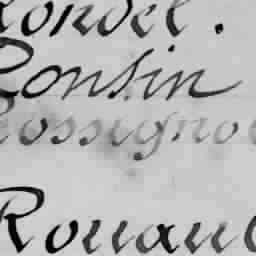 Rondel.
Ronsin
Rossignol
Rouault